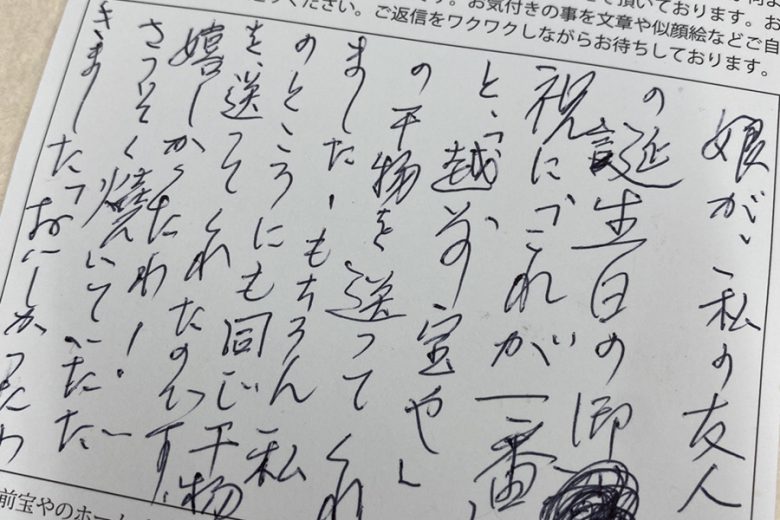 て頂いております。お
お気付きの事を文章や似顔絵などご自
ください。ご返信をワクワクしながらお待ちしております。
娘が、私の友人
の誕生日の御
祝に「これが一番」
と、「越前宝や」
の干物を送ってくれ
ました！もちろん私
のところにも同じ干物
を、送ってくれたのです。
嬉しかったわー！
さっそく焼いていただ
きました。「おいしかったわ
前宝やのホーム